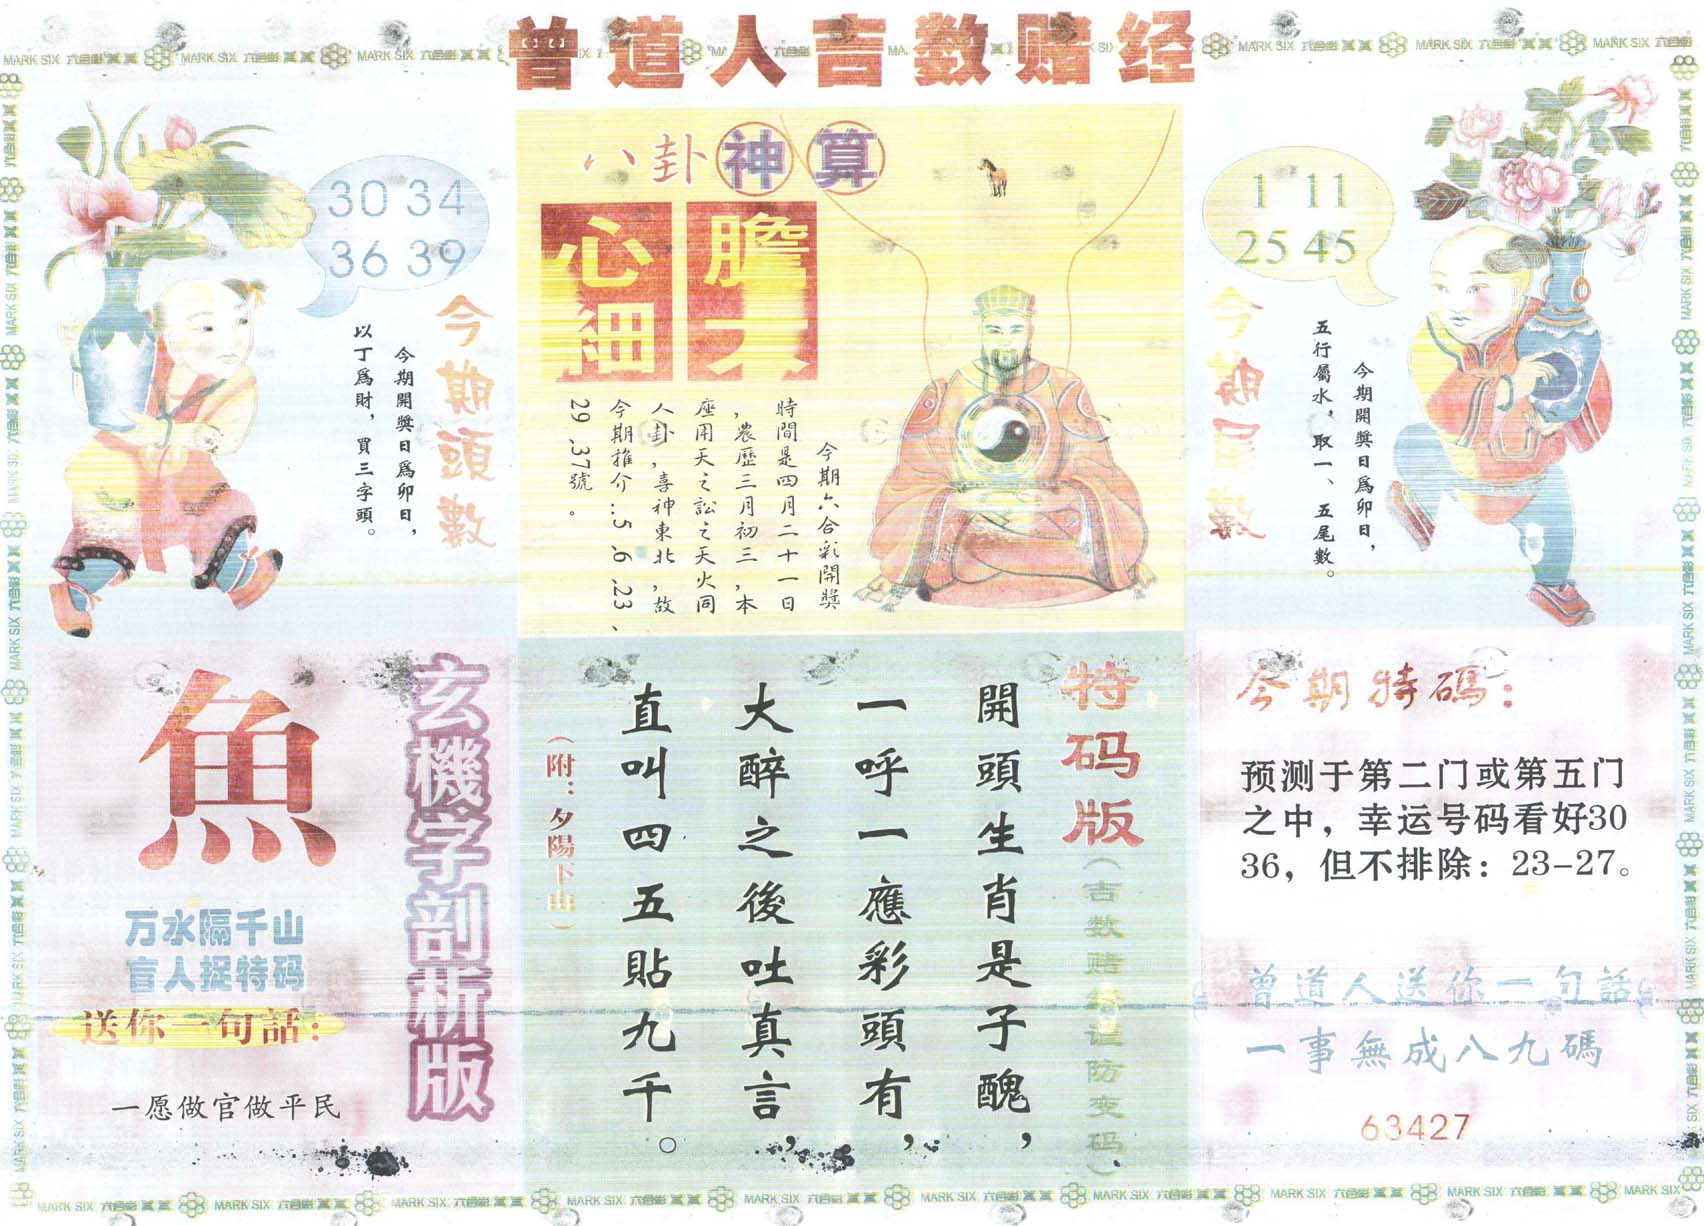 曾道人吉数赌经
MARK SIX 六合彩
30 34
36 39
今期頭數
今期開獎日爲卯日，
以丁爲財，買三字頭。
八卦神算
膽大
心細
今期六合彩開獎
時間是四月二十一日
，農歷三月初三，本
座用天之訟之天火同
人卦，喜神東北，故
今期推介..5.6.23、
29.37號。
1 11
25 45
今期尾數
今期開獎日爲卯日，
五行屬水，取一、五尾數。
玄機字剖析版
魚
万水隔千山
盲人捉特码
送你一句話：
一愿做官做平民
特码版
（吉数赌经谨防变码）
開頭生肖是子醜，
一呼一應彩頭有，
大醉之後吐真言，
直叫四五貼九千。
（附：夕陽下山）
今期特碼：
预测于第二门或第五门
之中，幸运号码看好30
36，但不排除：23-27。
曾道人送你一句話
一事無成八九碼
63427